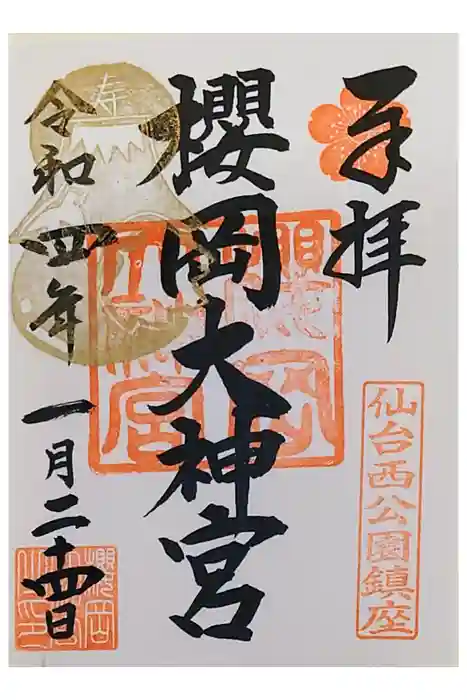 奉拝
仙台西公園鎮座
櫻岡大神宮
寿
令和四年一月二十四日